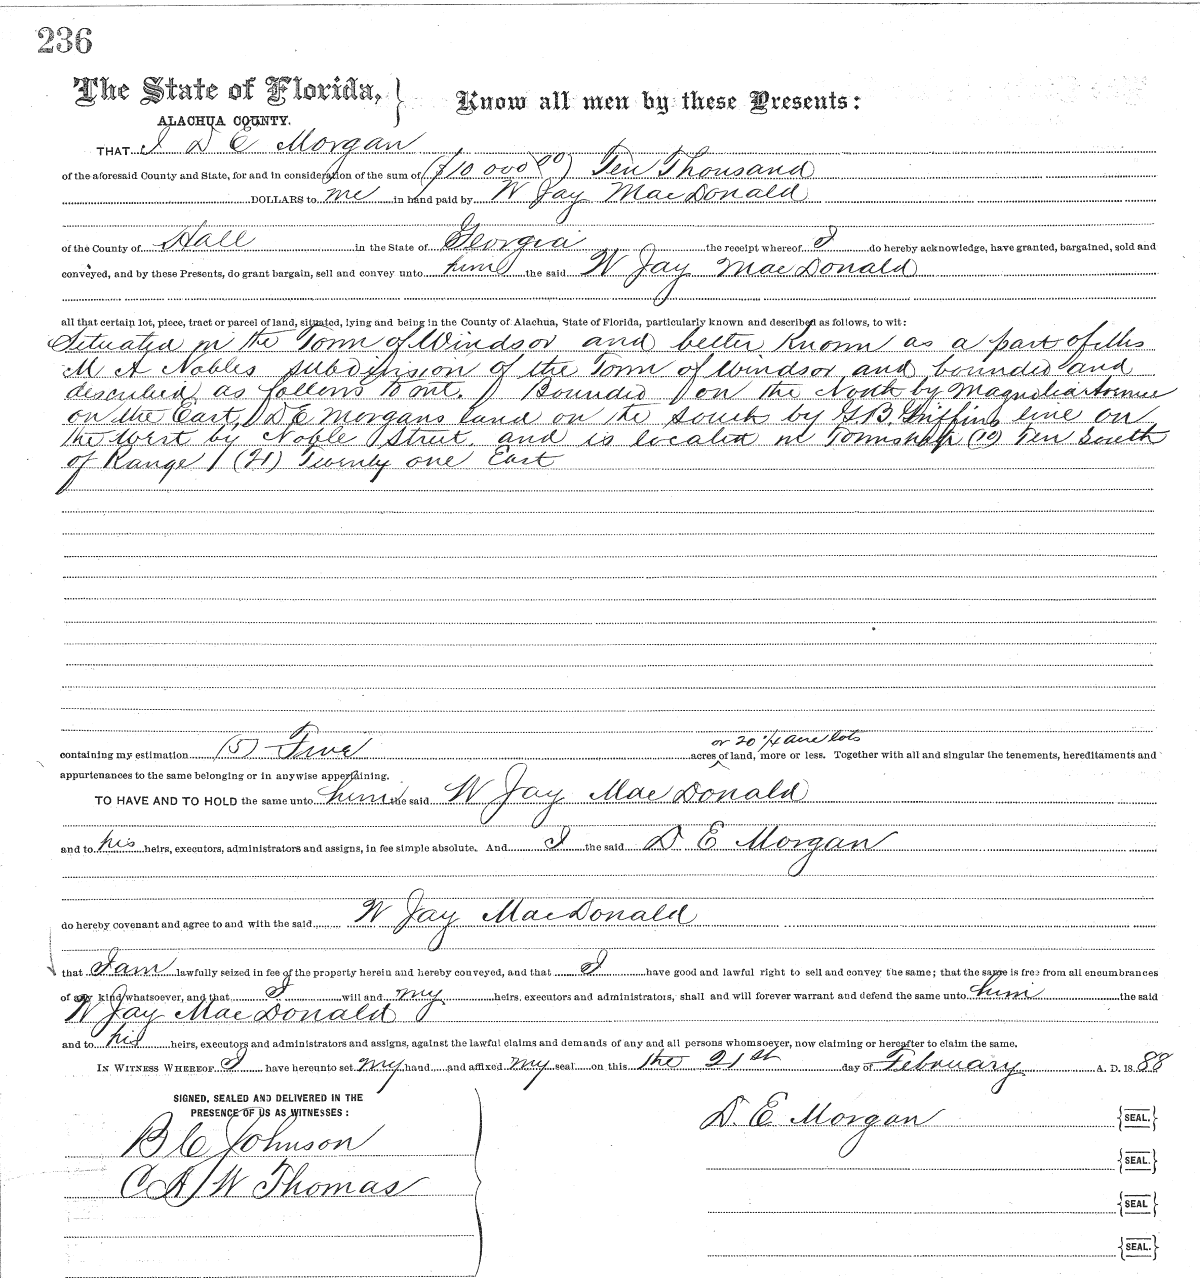 236
The State of Florida, } Know all men by these Presents:
ALACHUA COUNTY.
THAT I D E Morgan
of the aforesaid County and State, for and in consideration of the sum of ($10 000 00) Ten Thousand
DOLLARS to me in hand paid by W Jay MacDonald
of the County of Hall in the State of Georgia the receipt whereof I do hereby acknowledge, have granted, bargained, sold and
conveyed, and by these Presents, do grant bargain, sell and convey unto him the said W Jay MacDonald
all that certain lot, piece, tract or parcel of land, situated, lying and being in the County of Alachua, State of Florida, particularly known and described as follows, to wit:
Situated in the Town of Windsor and better Known as a part of Mrs
M A Nobles subdivision of the Town of Windsor and bounded and
described as follows to wit. Bounded on the North by Magnolia Avenue
on the East, D E Morgans land on the South by G.B. Griffins line on
the West by Noble Street, and is located in Township (10) Ten South
of Range (21) Twenty one East
containing my estimation (5) Five or 20 1/4 acre lots
acres of land, more or less. Together with all and singular the tenements, hereditaments and
appurtenances to the same belonging or in anywise appertaining.
TO HAVE AND TO HOLD the same unto him the said W Jay MacDonald
and to his heirs, executors, administrators and assigns, in fee simple absolute. And I the said D E Morgan
do hereby covenant and agree to and with the said W Jay MacDonald
that I am lawfully seized in fee of the property herein and hereby conveyed, and that I have good and lawful right to sell and convey the same; that the same is free from all encumbrances
of any kind whatsoever, and that I will and my heirs, executors and administrators, shall and will forever warrant and defend the same unto him the said
W Jay MacDonald
and to his heirs, executors and administrators and assigns, against the lawful claims and demands of any and all persons whomsoever, now claiming or hereafter to claim the same.
IN WITNESS WHEREOF I have hereunto set my hand and affixed my seal on this the 21st day of February A. D. 1888
SIGNED, SEALED AND DELIVERED IN THE
PRESENCE OF US AS WITNESSES:
D. E Morgan {SEAL.}
B C Johnson
{SEAL.}
C A W Thomas
{SEAL}
{SEAL.}